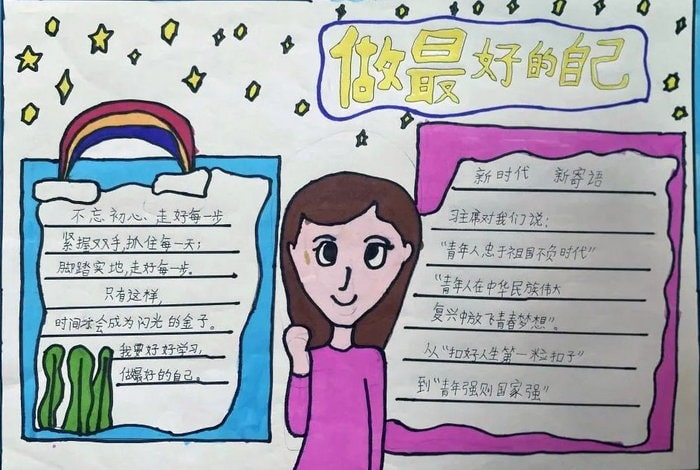 做最好的自己
不忘初心、走好每一步
紧握双手,抓住每一天;
脚踏实地,走好每一步。
只有这样,
时间才会成为闪光的金子。
我要好好学习,
做最好的自己。
新时代 新寄语
习主席对我们说:
“青年人忠于祖国不负时代”
“青年人在中华民族伟大
复兴中放飞青春梦想”。
从“扣好人生第一粒扣子”
到“青年强则国家强”